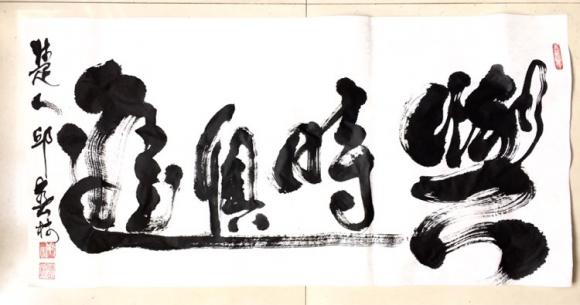 與時俱進
楚人邱春